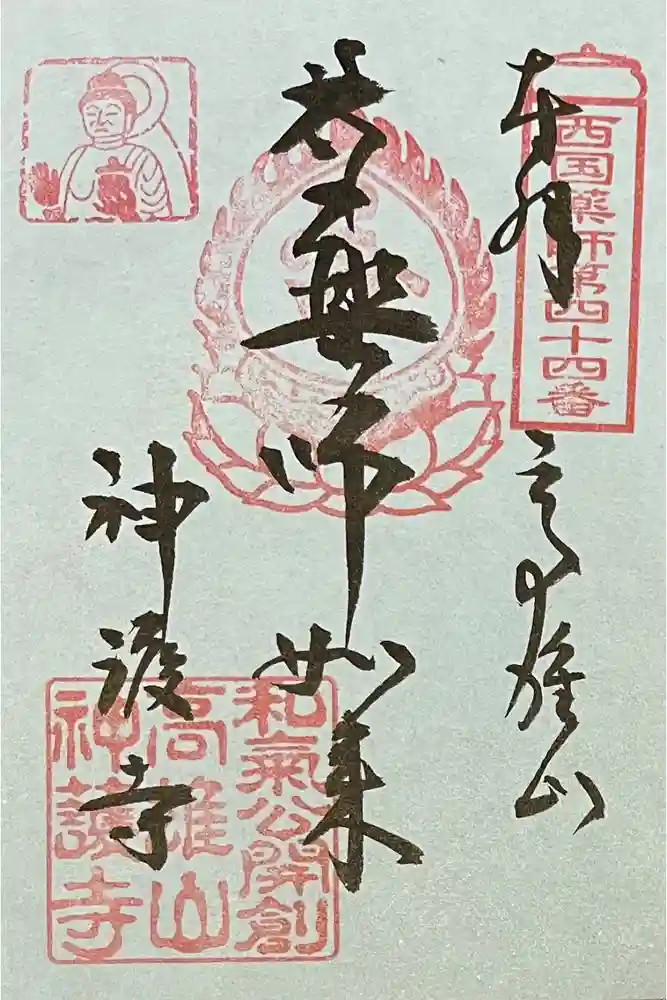 奉拝
西国薬師第四十四番
高雄山
薬師如来
神護寺
和氣公開創
高雄山
神護寺